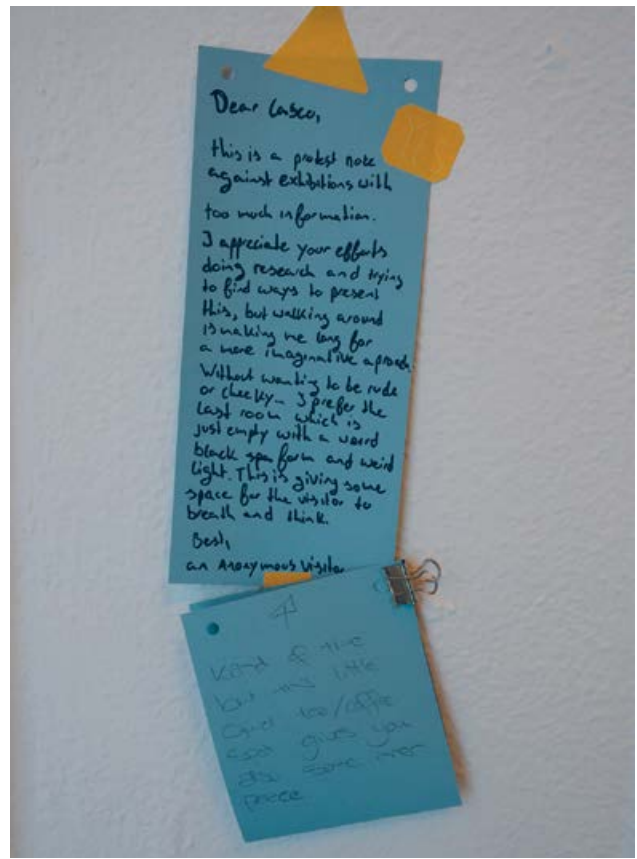 Dear Casco,
this is a protest note
against exhibitions with
too much information.
I appreciate your efforts
doing research and trying
to find ways to present
this, but walking around
is making me long for
a more imaginative aproach.
Without wanting to be rude
or cheeky- I prefer the
last room which is
just empty with a weird
black spa form and weird
light. This is giving some
space for the visitor to
breath and think.
Best,
an Anonymous Visitor
Kind of true
but this little
quiet tea/coffee
spot gives you
also some inner
peace